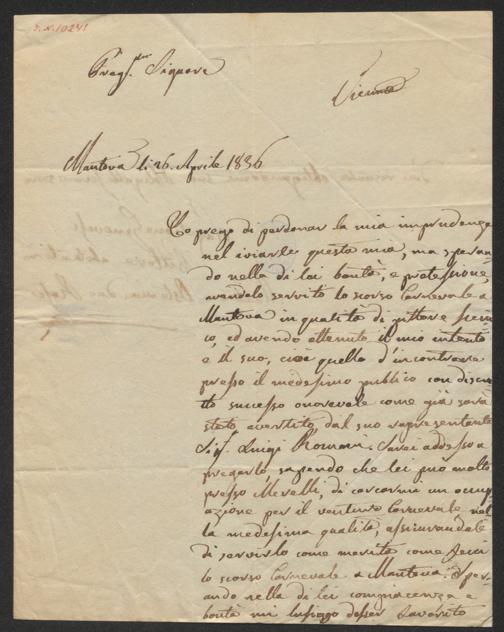 I.N. 10241
Preg.mo Signore
Vienna
Mantova li 26. Aprile 1836
La prego di perdonar la mia imprudenza
nel inviarle questa mia, ma speran-
do nella di lei bontà, e protesione,
avendolo servito lo scorso Carnevale a
Mantova in qualità di pittore sceni
co, ed avendo ottenuto il mio intento
e il suo, cioè quello d'incontrare
presso il medesimo publico con discre
to successo onorevole come già sarà
stato avertito dal suo rapresentante
Sig. Luigi Romani. Sarei addesso a
pregarlo sapendo che lei può molto
presso Merelli, di cercarmi un occup
azione per il venturo Carnevale nel
la medesima qualità, assicurandole
di servirlo come merita come feci
lo scorso Carnevale a Mantova. Sper
ando nella di lei compiacenza e
bontà mi lusingo d'esser favorito